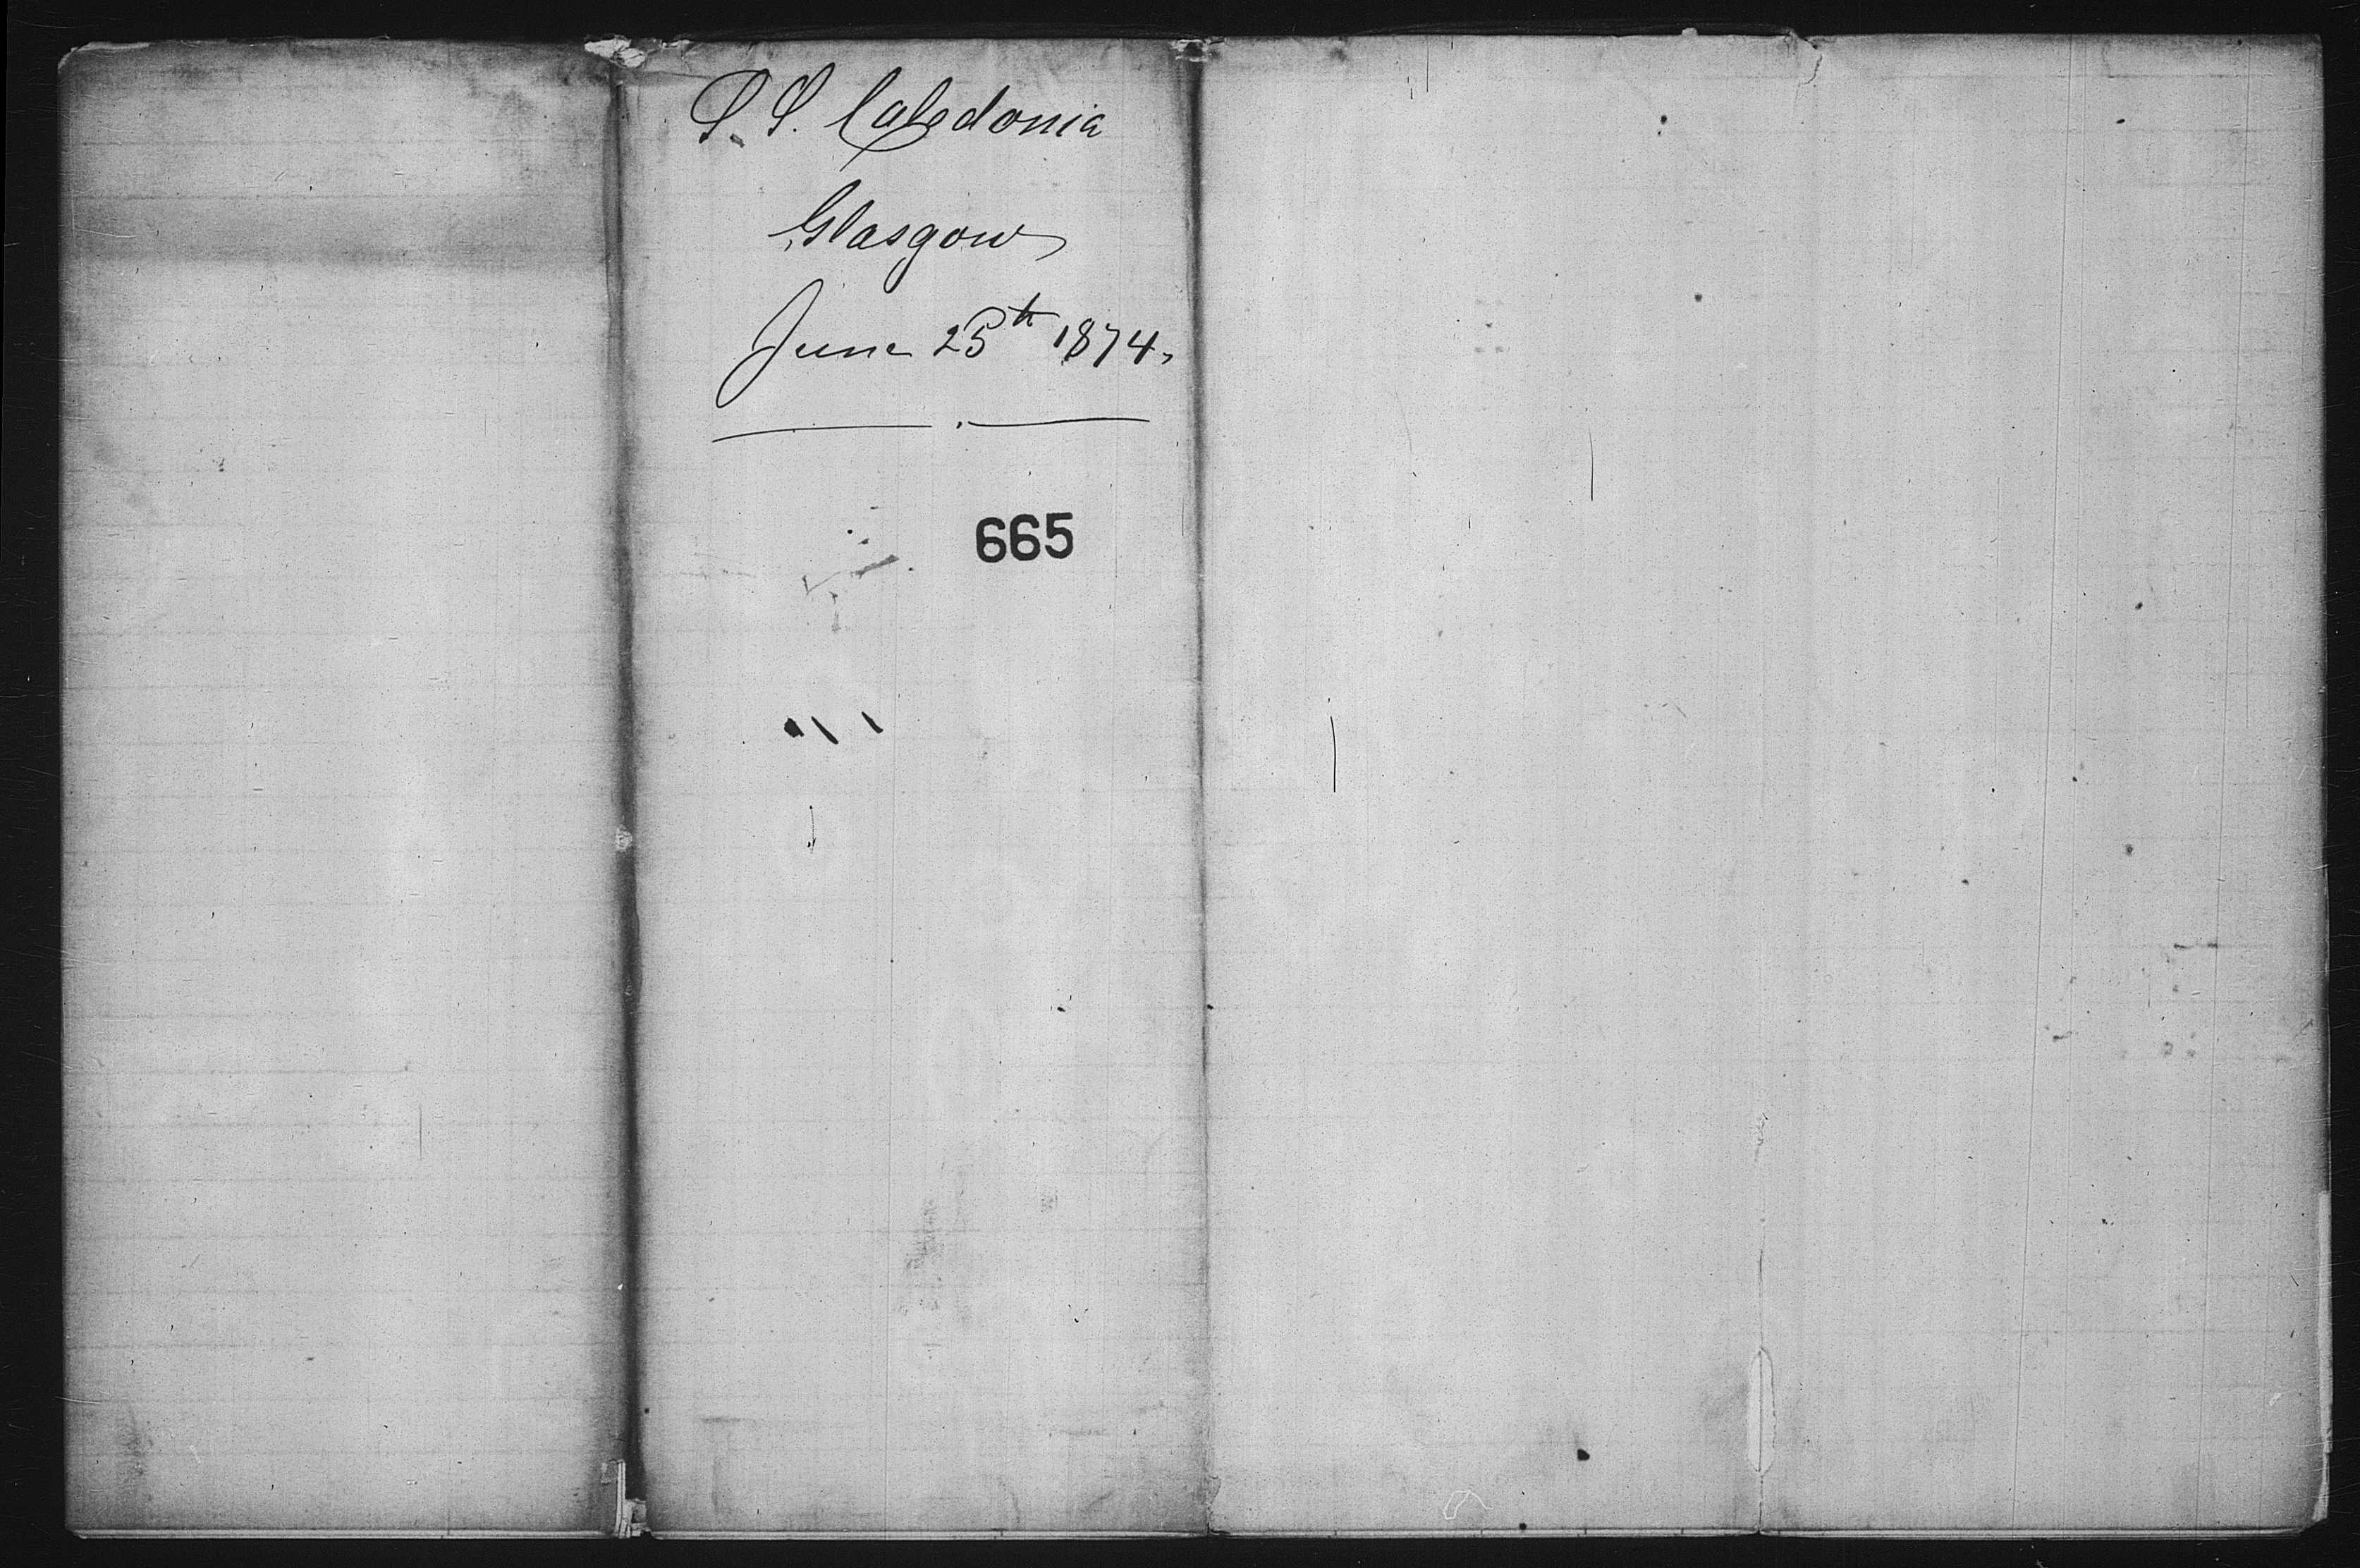 S. S. Caledonia
Glasgow
June 25th 1874.
665